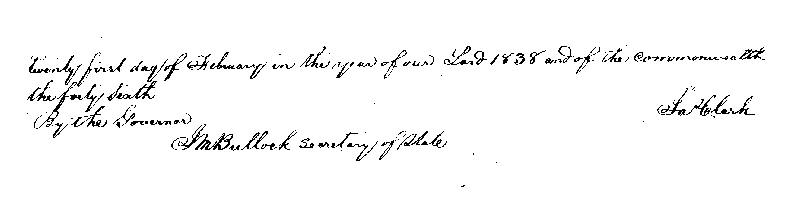 twenty first day of February in the year of our Lord 1838 and of the commonwealth
the forty sixth
By the Governor
Jas Clark
J M Bullock secretary of State